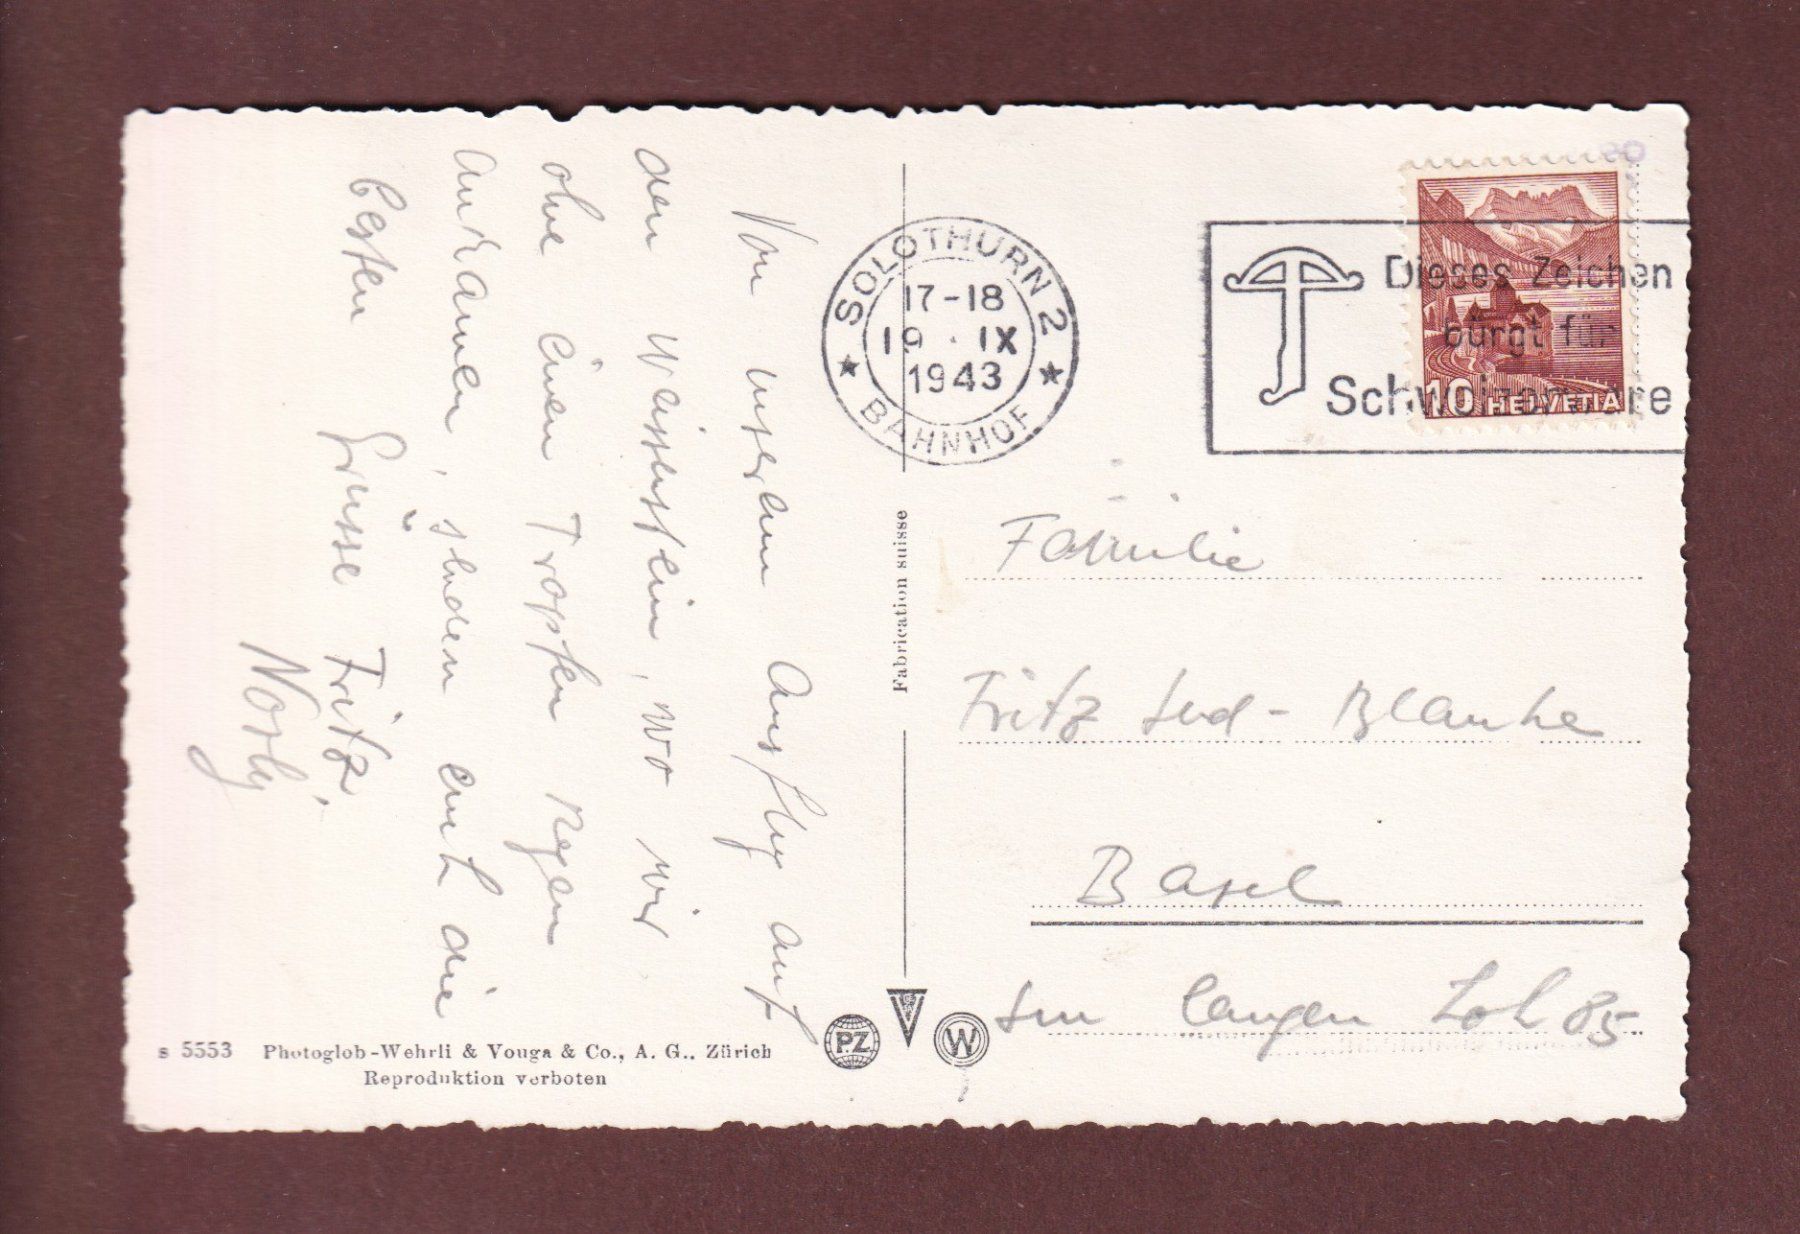 Von unserem Ausflug auf
den Weissenstein, wo wir
ohne einen Tropfen Regen
ankamen, senden euch die
besten Grüsse Fritz.
SOLOTHURN 2
17-18
19 · IX
1943
BAHNHOF
Dieses Zeichen
bürgt für
Schweizerware
10 HELVETIA
Fabrication suisse
Familie
Fritz - Blanke
Basel
Im langen Loh 85
PZ
W
s 5553 Photoglob-Wehrli & Vouga & Co., A. G., Zürich
Reproduktion verboten